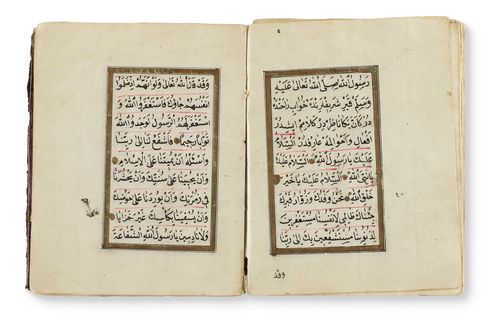 رسول الله صلى الله تعالى عليه
وسلم قبر شريفلرنده
افعال و احوالمه عارفدر السلام
عليك يا رسول الله السلام عليك
يا نبي الله السلام عليك يا خير
خلق الله نحن وفدك وزوار قبرك
جئناك ظالمي لانفسنا مستغفرين
لذنوبنا مستشفعين بك الى ربنا
وقد
وقد قال الله تعالى ولو انهم اذ ظلموا
انفسهم جاؤك فاستغفروا الله و
استغفر لهم الرسول لوجدوا الله
توابا رحيما فاشفع لنا الى ربنا
واسئله ان يميتنا على الاسلام
وان يحيينا على سنتك وان يحشرنا
في زمرتك وان يوردنا على حوضك
وان يسقينا بكأسك غير خزايا
ولا نادمين يا رسول الله الشفاعة